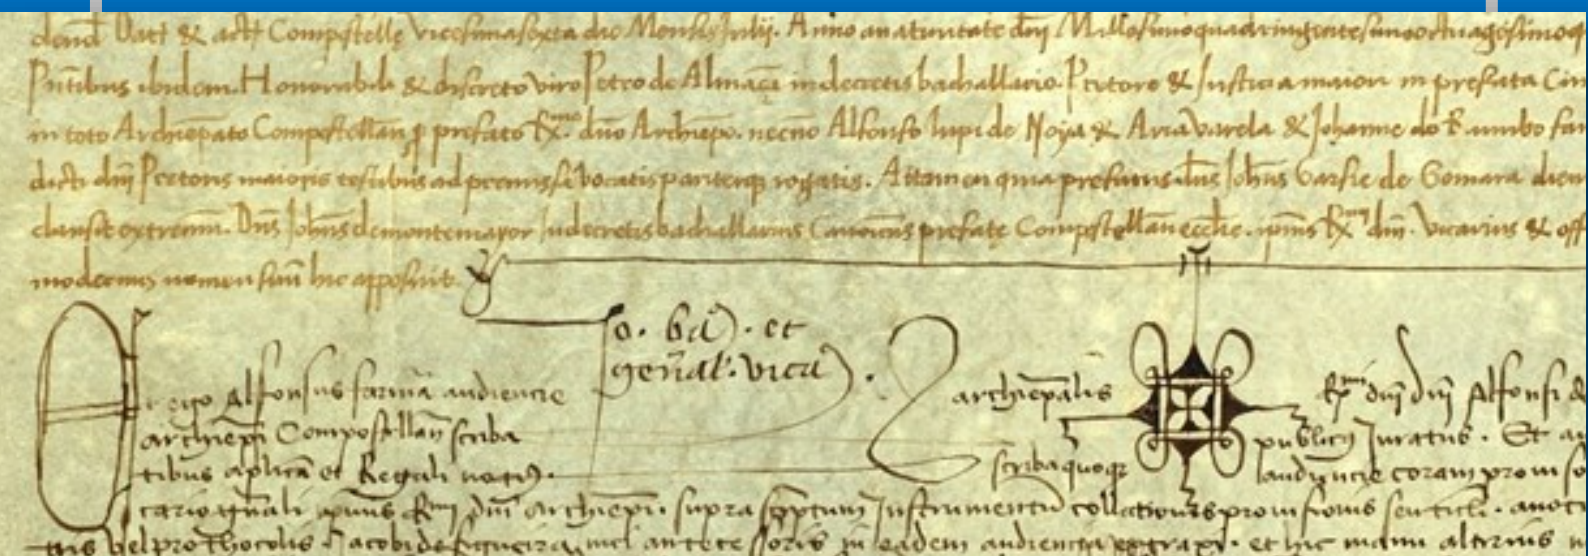 dend Datt & actt Compostelle vicesimasexta die Mensis Julij. Anno anativitate dnj Millesimoquadringentesimooctuagesimoq
Pntibus ibidem Honorabili & discreto viro Petro de Almaçã indecretis bachallario. Pretore & Justicia maiori in prefata Civi
in toto Archiepato Compostellan p prefato Rmo dno Archiepo. necno Alfonso lupi de Noya & Aria Varela & Johanne do
dicti dnj Pretoris maioris testibus ad premissa vocatis pariterq rogatis. Attamen quia prefatus dns Johns Garsie de Gomara diem
clausit extremu. Dns Johns demontemayor Indecretis bachallarius Canonicus prefate Compostellan ecclie. ipius Rmj dnj. vicarius & off
modernus nomen suu hic apposuit.
Jo. ba). et
genal. vica).
Et ego Alfonsus farina audiencie archiepalis Rmj dnj dnj Alfonsi d
archiepi Compostellan scriba scriba quoq publicq Juratus. Et
tibus aplica et Regali notq. audiencie coram
cario gnali Rmj dnj archiepi. supra sptum Instrumentu collationis provisionis seu tituli.
vel prothocolis. Jacobi de figueira mei antecessoris in eadem audiencia et hic manu alterius